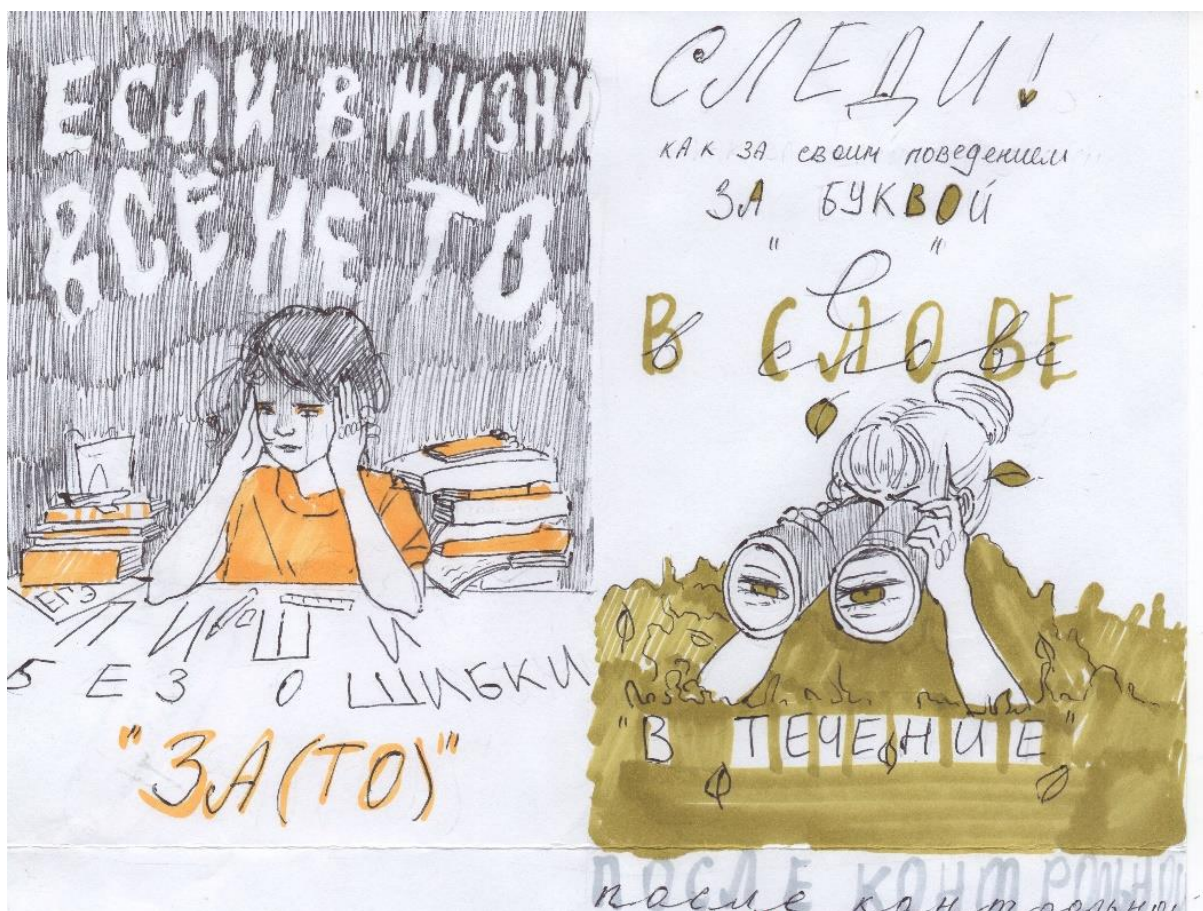 ЕСЛИ В ЖИЗНИ
ВСЁ НЕ ТО,
ЕГЭ
ПИШИ
БЕЗ ОШИБКИ
"ЗА(ТО)"
СЛЕДИ!
КАК ЗА своим поведением
ЗА БУКВОЙ
"е"
В СЛОВЕ
"В ТЕЧЕНИЕ"
ПОСЛЕ КОНТРОЛЬНОЙ